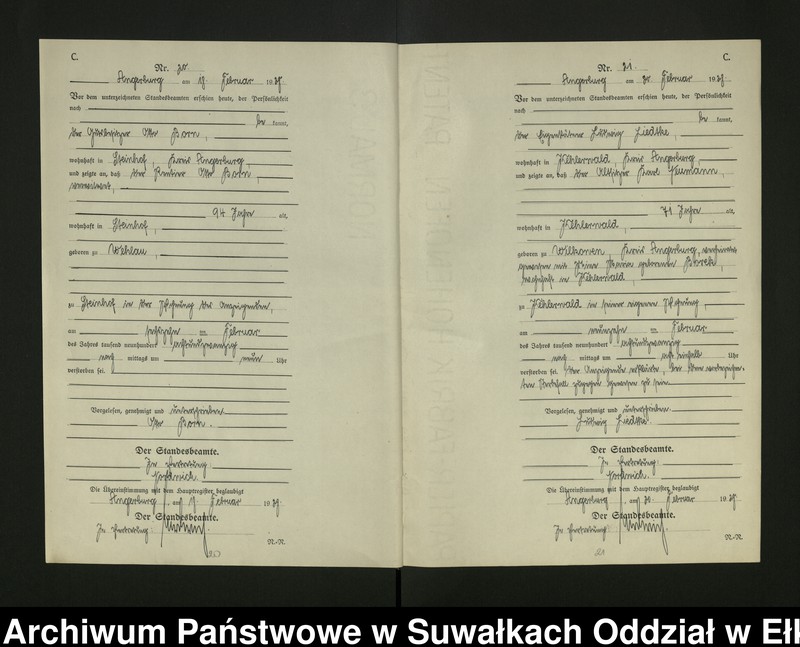 C.
Nr. 20
Angerburg am 17. Februar 1928.
Vor dem unterzeichneten Standesbeamten erschien heute, der Persönlichkeit
nach
be kannt,
der Gutsbesitzer Otto Born,
wohnhaft in Steinhof, Kreis Angerburg,
und zeigte an, daß der Rentier Otto Born,
verwitwet,
94 Jahre alt,
wohnhaft in Steinhof,
geboren zu Wehlau,
zu Steinhof in der Wohnung des Anzeigenden,
am sechzehn ten Februar
des Jahres tausend neunhundert achtundzwanzig
nach mittags um neun Uhr
verstorben sei.
Vorgelesen, genehmigt und unterschrieben
Otto Born.
Der Standesbeamte.
In Vertretung:
Die Übereinstimmung mit dem Hauptregister beglaubigt
Angerburg, am 17. Februar 1928.
Der Standesbeamte.
In Vertretung:
N.-N.
C.
Nr. 21.
Angerburg am 20. Februar 1928
Vor dem unterzeichneten Standesbeamten erschien heute, der Persönlichkeit
nach
be kannt,
der Eigentümer Ludwig Liedtke,
wohnhaft in Kreis Angerburg,
und zeigte an, daß der Altsitzer Karl Neumann,
71 Jahre alt,
wohnhaft in
geboren zu Wilkowen, Kreis Angerburg, verheiratet
gewesen mit geborenen
wohnhaft in
zu in seiner eigenen Wohnung,
am neunzehn ten Februar
des Jahres tausend neunhundert achtundzwanzig
nach mittags um acht einhalb Uhr
verstorben sei. Der Anzeigende erklärte, bei dem vorbezeichne-
ten Sterbefall zugegen gewesen zu sein.
Vorgelesen, genehmigt und unterschrieben
Ludwig Liedtke.
Der Standesbeamte.
In Vertretung:
Die Übereinstimmung mit dem Hauptregister beglaubigt
Angerburg, am 20. Februar 1928.
Der Standesbeamte.
In Vertretung:
N.-N.
21
Archiwum Państwowe w Suwałkach Oddział w Ełk